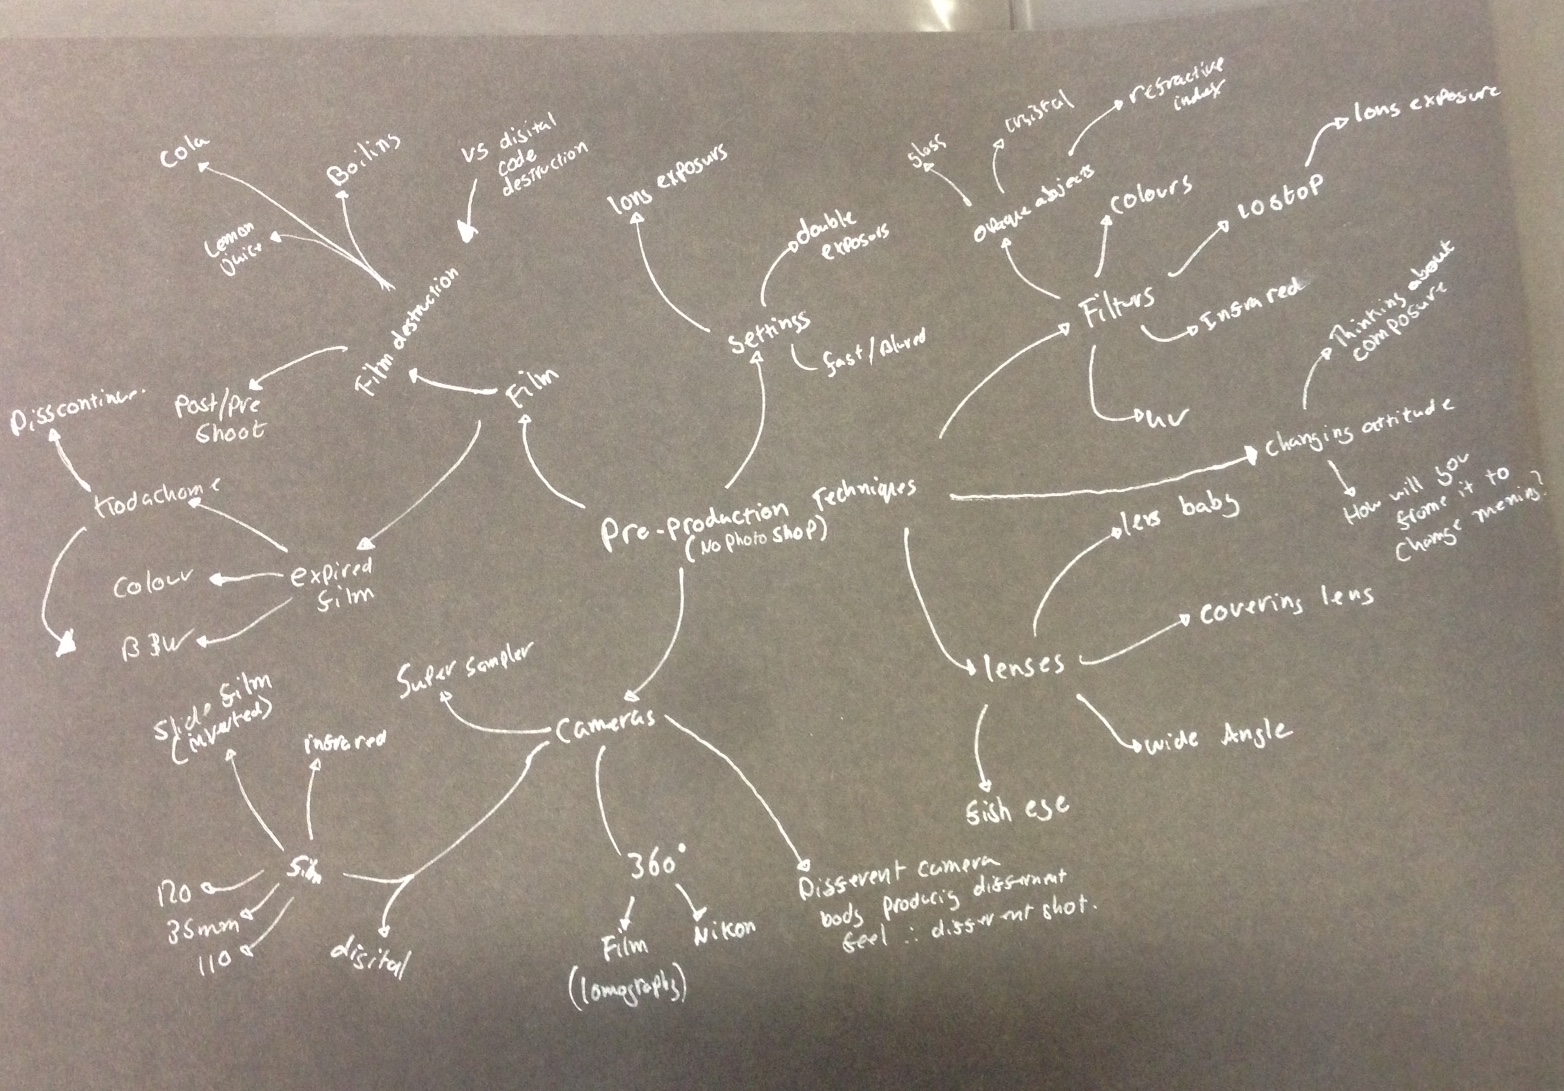 Cola
Boiling
Lemon
juice
vs digital
code
destruction
Film destruction
Post/Pre
shoot
Film
Kodachome
expired
film
Colour
B&W
long exposurs
Settings
double
exposurs
fast/Blured
glass
refractive
index
opaque objects
colours
10 stop
long exposure
Filturs
Infrared
uv
Thinking about
composure
Changing attitude
How will you
frame it to
change mening?
Pre-production Techniques
(No photo shop)
lens baby
covering lens
lenses
wide Angle
fish eye
Super sampler
Cameras
Slide film
(inverted)
infrared
film
120
35mm
110
digital
360°
Film
(lomography)
Nikon
Different camera
body producig different
feel ∴ different shot.